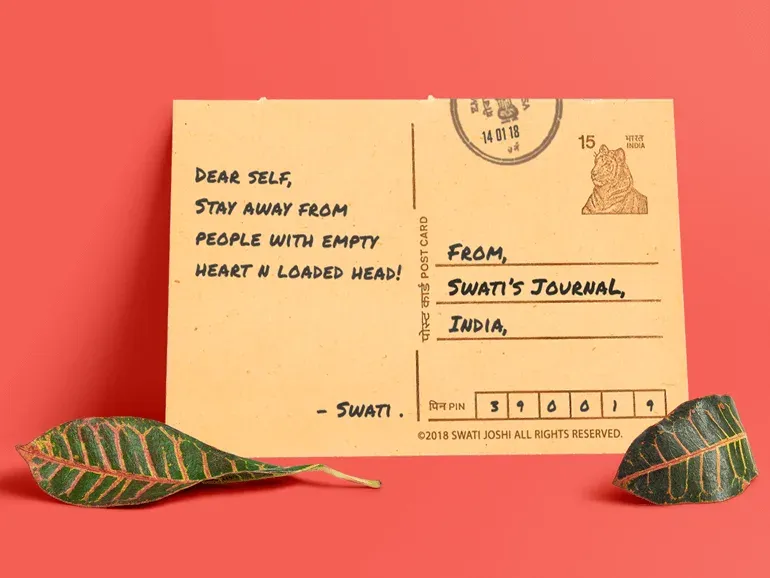 DEAR SELF,
STAY AWAY FROM
PEOPLE WITH EMPTY
HEART N LOADED HEAD!
- SWATI .
पोस्ट कार्ड POST CARD
14 01 18
15
भारत
INDIA
FROM,
SWATI'S JOURNAL,
INDIA,
पिन PIN 390019
©2018 SWATI JOSHI ALL RIGHTS RESERVED.